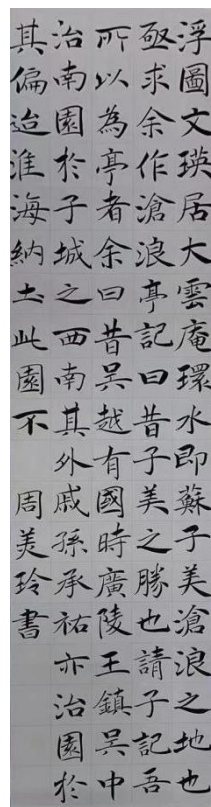 浮圖文瑛居大雲庵環水即蘇子美滄浪之地也
亟求余作滄浪亭記曰昔子美之勝也請子記吾
所以為亭者余曰昔吳越有國時廣陵王鎮吳中
治南園於子城之西南其外戚孫承祐亦治園於
其偏迨淮海納土此園不 周美玲書